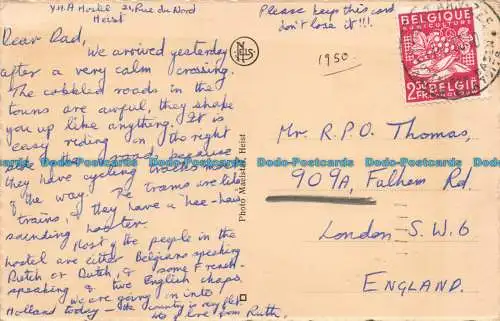 Y.H.A Hostel 24, Rue du Nord
Heist
Please keep this card,
don't lose it!!!
1950.
Dear Dad,
We arrived yesterday
after a very calm crossing.
The cobbled roads in the
towns are awful, they shape
you up like anything. It is
easy riding on the right
side the road, because
they have cycling tracks most
of the way. The trams are like
trains, & they have a hee-haw
sounding hooter.
Most of the people in the
hostel are either Belgians speaking
Dutch or Dutch, & some French-
speaking & two English chaps.
We are going in into
Holland today – the country is very flat
lots of love from Ruth.
Photo Matteyses, Heist
NELS
BELGIQUE
AGRICULTURA
2,50
FR
BELGIE
Mr. R.P.O. Thomas,
909A, Fulham Rd.
London S.W.6
ENGLAND.
Dodo-Postcards Dodo-Postcards Dodo-Postcards Dodo-Postcards